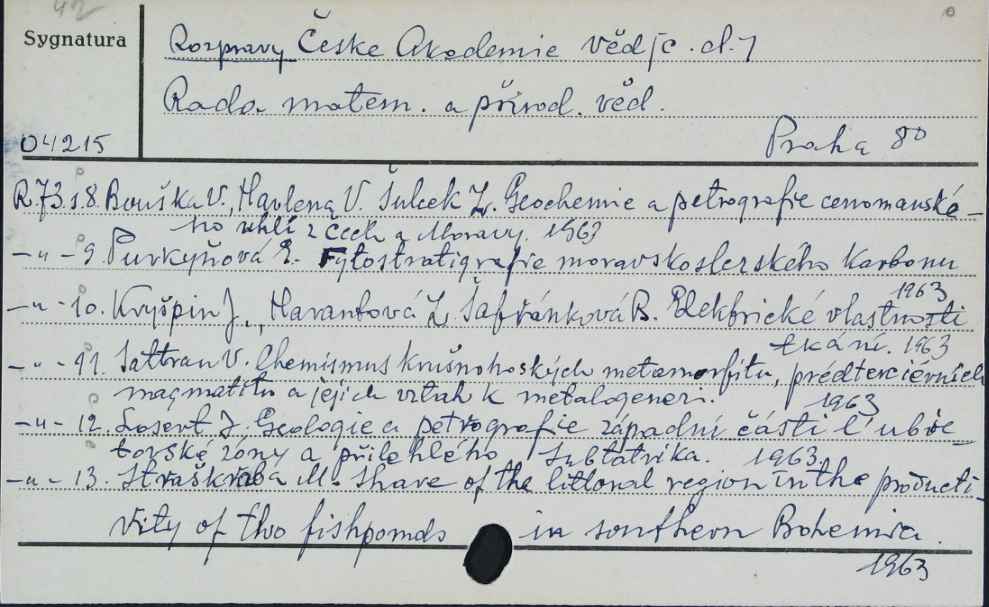 42
Sygnatura
Rozpravy České Akademie Věd
Rada matem. a přirod. věd.
04215
Praha 8º
R.73.s.8. Bouška V., Havlena V. Šulcek Z. Geochemie a petrografie cenomanské-
ho uhlí z Čech a Moravy. 1963
-"- 9. Purkyňová E. Fytostratigrafie moravskoslerského Karbonu
1963
-"- 10. Kryšpin J., Harantová Z. Šafránková B. Elektrické vlastnosti
tkání. 1963
-"- 11. Sattran V. Chemismus krušnohoských metamorfitu, prédterciérnich
magmatitu a jejich vztah k metalogeneri. 1963
-"- 12. Losert J. Geologie a petrografie západní části l'ubie-
torské zóny a přilehlého subtatrika. 1963
-"- 13. Straškraba M. Share of the littoral region in the producti-
vity of two fishponds in southern Bohemia.
1963